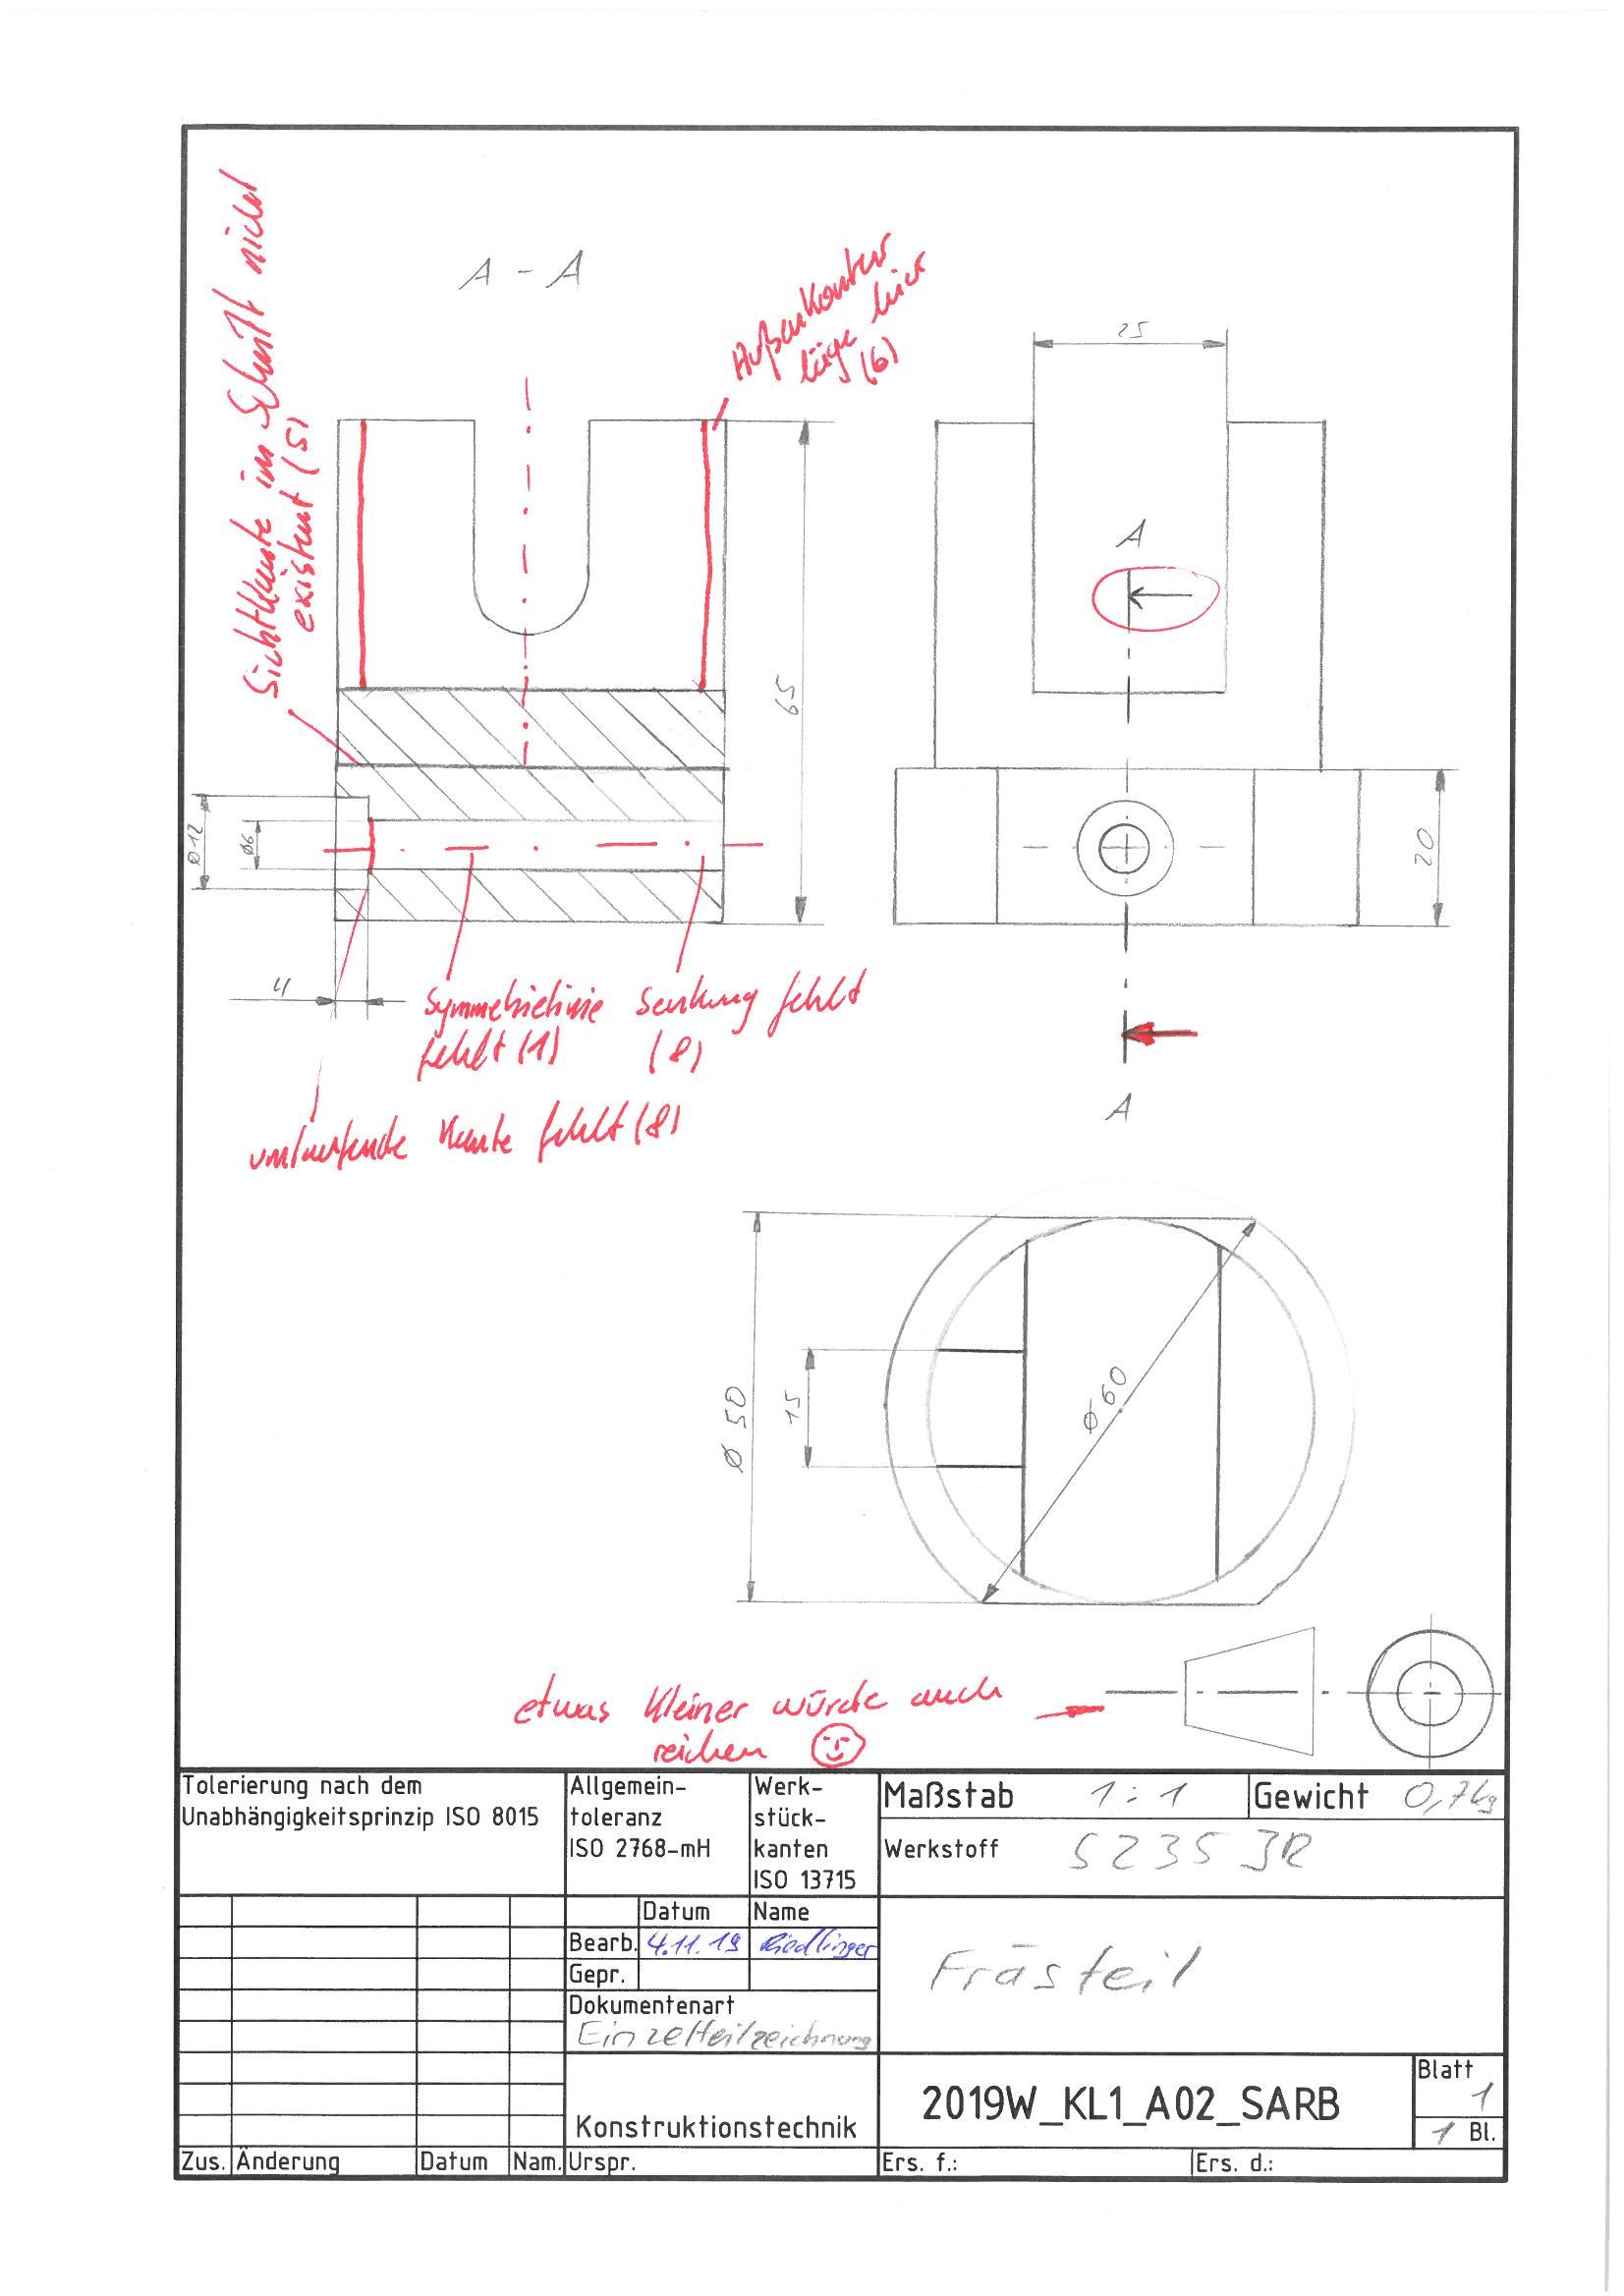 Sichtkante im Schnitt nicht
existent (5)
A - A
Außenkontur
läge hier
(6)
25
A
65
⌀12
⌀6
20
4
Symmetrielinie
fehlt (1)
Senkung fehlt
(8)
umlaufende Kante fehlt (8)
A
⌀ 50
15
⌀ 60
etwas kleiner würde auch
reichen
Tolerierung nach dem
Unabhängigkeitsprinzip ISO 8015
Allgemein-
toleranz
ISO 2768-mH
Werk-
stück-
kanten
ISO 13715
Maßstab 1:1
Gewicht 0,7kg
Werkstoff S235JR
Datum Name
Bearb. 4.11.19 Riedlinger
Gepr.
Dokumentenart
Einzelteilzeichnung
Frästeil
Konstruktionstechnik
2019W_KL1_A02_SARB
Blatt
1
1 Bl.
Zus. Änderung Datum Nam. Urspr. Ers. f.: Ers. d.: